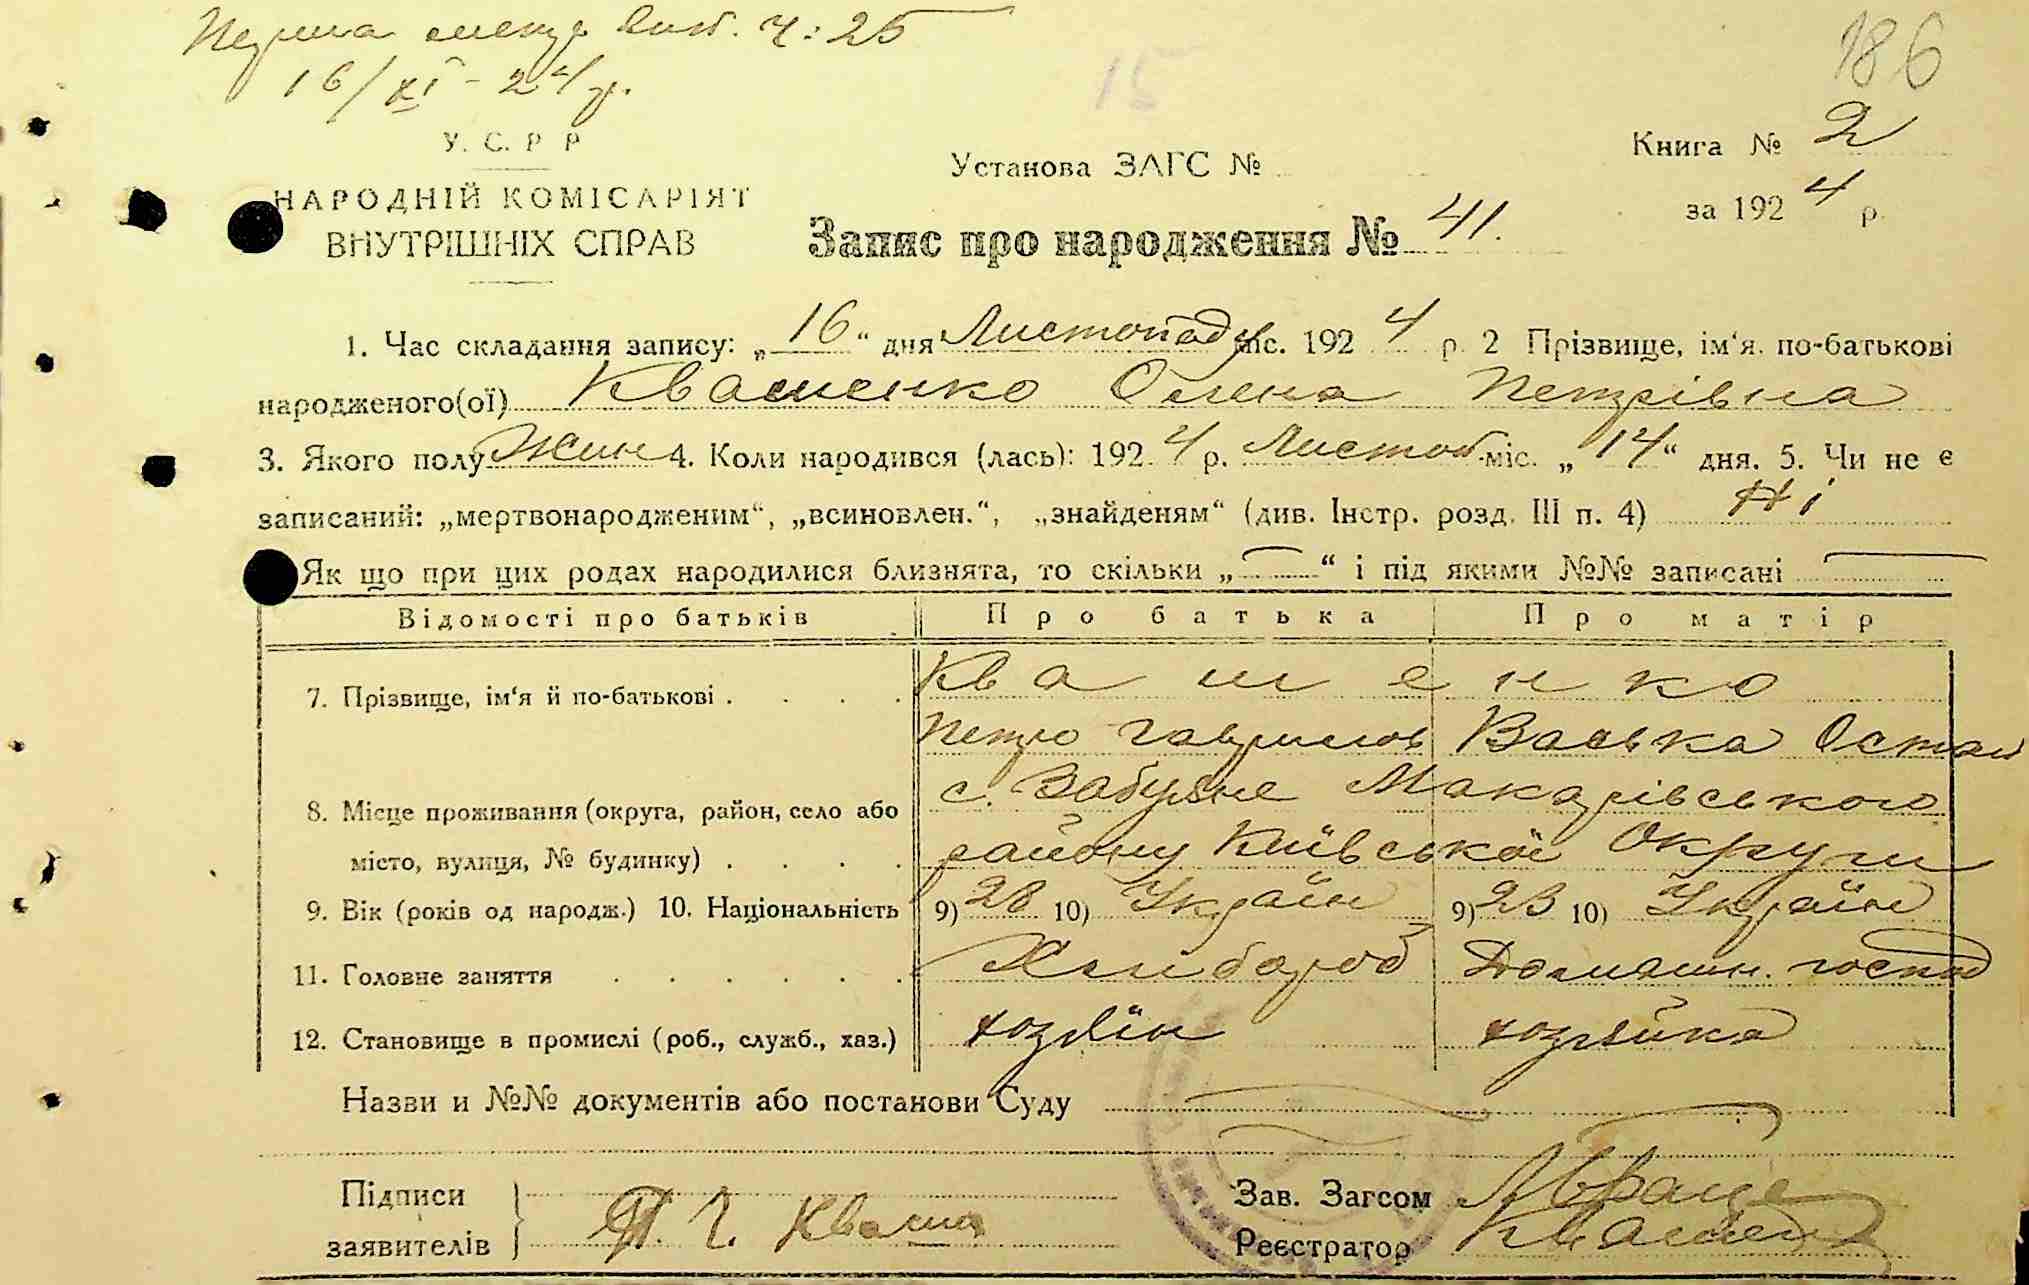 Перша
16/XI - 24 р.
15
186
У. С. Р Р
НАРОДНІЙ КОМІСАРІЯТ
ВНУТРІШНІХ СПРАВ
Установа ЗАГС №
Книга № 2
за 1924 р.
Запис про народження № 41.
1. Час складання запису: „16“ дня Листопаду міс. 1924 р. 2 Прізвище, ім‘я. по-батькові
народженого(ої) Квашенко Олена Петрівна
3. Якого полу Жин 4. Коли народився (лась): 1924 р. Листоп. міс. „14“ дня. 5. Чи не є
записаний: „мертвонародженим“, „всиновлен.“, „знайденям“ (див. Інстр. розд. III п. 4) Ні
Як що при цих родах народилися близнята, то скільки „—“ і під якими №№ записані —
Відомості про батьків Про батька Про матір
7. Прізвище, ім‘я й по-батькові . . . . Квашенко
Петро Гаврилов Васька Остап
8. Місце проживання (округа, район, село або с. Забуяне Макарівського
місто, вулиця, № будинку) . . . . району Київської Округи
9. Вік (років од народж.) 10. Національність 9) 28 10) Україн 9) 23 10) Україн
11. Головне заняття . . . . . . Хлибороб Домашн. господ
12. Становище в промислі (роб., служб., хаз.) хозяїн хозяйка
Назви и №№ документів або постанови Суду
Підписи
заявителів
П. Г. Кваша
Зав. Загсом
Реєстратор